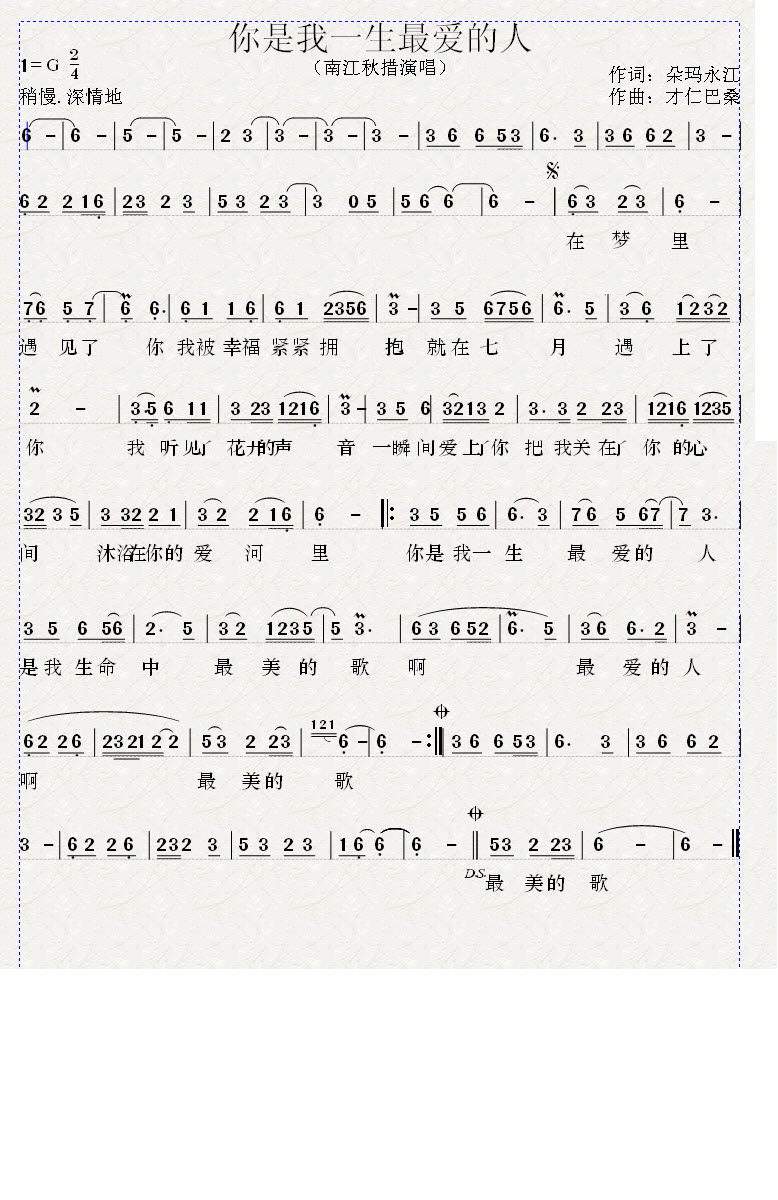 你是我一生最爱的人
1=G 2/4
（南江秋措演唱）
作词：朵玛永江
稍慢.深情地
作曲：才仁巴桑
6 - | 6 - | 5 - | 5 - | 2 3 | 3 - | 3 - | 3 - | 3 6 6 53 | 6. 3 | 3 6 6 2 | 3 -
6 2 2 16 | 23 2 3 | 5 3 2 3 | 3 0 5 | 5 6 6 | 6 - | 6 3 2 3 | 6 -
在 梦 里
76 5 7 | 6 6. | 6 1 1 6 | 6 1 2356 | 3 - | 3 5 6756 | 6. 5 | 3 6 1232
遇 见了 你 我被 幸福 紧紧 拥 抱 就在 七 月 遇 上了
2 - | 3·5 6 11 | 3 23 1216 | 3 - | 3 5 6 | 3213 2 | 3. 3 2 23 | 1216 1235
你 我 听见了 花开的声 音 一瞬间爱上了你 把 我关在了 你 的心
32 3 5 | 3 32 2 1 | 3 2 2 16 | 6 - ‖: 3 5 5 6 | 6. 3 | 76 5 67 | 7 3.
间 沐浴在你的 爱 河 里 你是 我一 生 最 爱的 人
3 5 6 56 | 2. 5 | 3 2 1235 | 5 3. | 6 3 652 | 6. 5 | 3 6 6. 2 | 3 -
是我 生命 中 最 美 的 歌 啊 最 爱 的 人
6 2 2 6 | 2321 2 2 | 5 3 2 23 | 121 6 - | 6 - :‖ 3 6 6 53 | 6. 3 | 3 6 6 2
啊 最 美的 歌
3 - | 6 2 2 6 | 232 3 | 5 3 2 3 | 16 6 | 6 - ‖ 53 2 23 | 6 - | 6 - ‖
D.S. 最 美的 歌